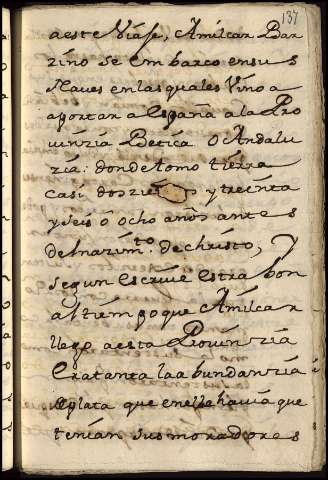 137
aeste Viaje, Amilcar Bar
zino se embarco ensus
Naues enlas quales Vino a
aportar a España ala Pro
uinzia Betica O Andalu
zia: donde tomo tierra
casi doszien s y treinta
y seis ô ocho anõs antes
del nazimto. de christo, y
segun escriue estrabon
al tiempo que Amilcar
llego aesta Prouinzia
Era tanta la abundanzia
de plata que enella hauia que
tenian sus moradores